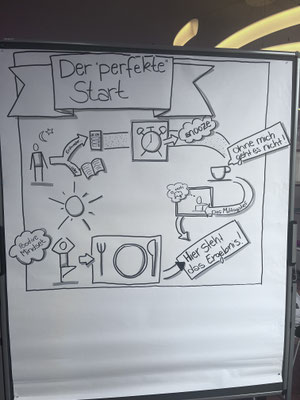 Der "perfekte"
Start
snooze
Ohne mich
geht es nicht!
Positive
Mindset
Hier steht
das Ergebnis!